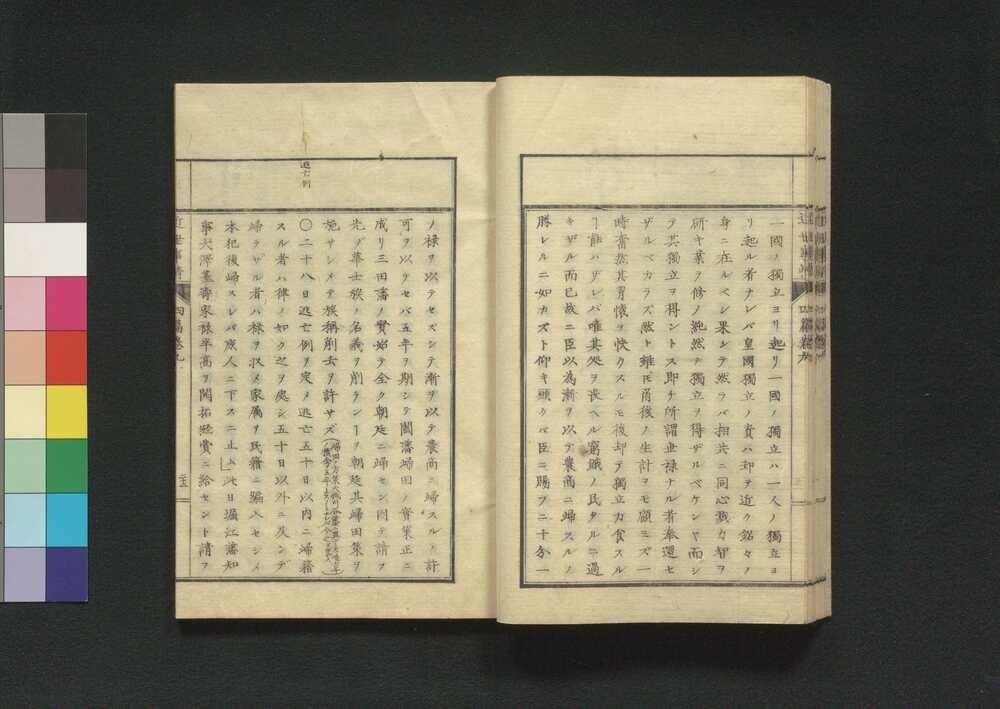 一國ノ獨立ヨリ起リ一國ノ獨立ハ一人ノ獨立ヨ
リ起ル者ナレバ皇國獨立ノ責ハ却テ近ク銘々ノ
身ニ在ルベシ果シテ然ラバ相共ニ同心戮力智ヲ
研キ業ヲ修メ純然タル獨立ヲ得ザルベケンヤ而シ
テ其獨立ヲ得ントスル即チ所謂世禄ナル者奉還セ
ザルベカラズ然トモ雖モ向後ノ生計ヲモ顧ミズ一
時奮然其胃懷ヲ快クスルモ後却テ獨立力食スル
ヿ能ハザレバ唯其処ヲ喪ヘル窮餓ノ民タルニ過
キザル而已故ニ臣以為漸ヲ以テ農商ニ歸スルノ
勝レルニ如カズト仰キ願クバ臣ニ賜フニ十分一
近世事情 四篇卷九
逃亡例
ノ禄ヲ以テセズシテ漸ヲ以テ農商ニ歸スルノ計
可ヲ以テセバ五年ヲ期シテ闔藩歸田ノ實策正ニ
成リ三田藩ノ實始テ全ク朝廷ニ歸セン因テ請フ
先ヅ華士族ノ名義ヲ削ランヿヲ朝廷其歸田策ヲ
施サシメテ族稱削去ヲ許サズ
〇二十八日逃亡例ヲ定メ逃亡五十日以内ニ歸籍
スル者ハ律ノ如ク之ヲ処シ五十日以外ニ及ンデ
歸ラザル者ハ禄ヲ収メ家属ヲ民籍ニ編入セシメ
本犯後歸スレバ庶人ニ下スニ止ム此日堀江藩知
事大澤基壽家禄半高ヲ開拓經費ニ給セント請フ
近世事情 四篇卷九